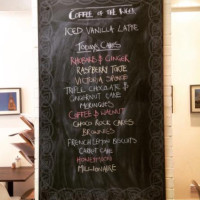 COFFEE OF THE WEEK
ICED VANILLA LATTE
TODAYS CAKES
RHUBARB & GINGER
RASPBERRY TORTE
VICTORIA SPONGE
TRIPLE CHOCOLATE &
CAKE
MERINGUES
COFFEE & WALNUT
CHOCO ROCK CAKES
BROWNIES
FRENCH LEMON
CARROT CAKE
HONEYCOMB
MILLIONAIRE